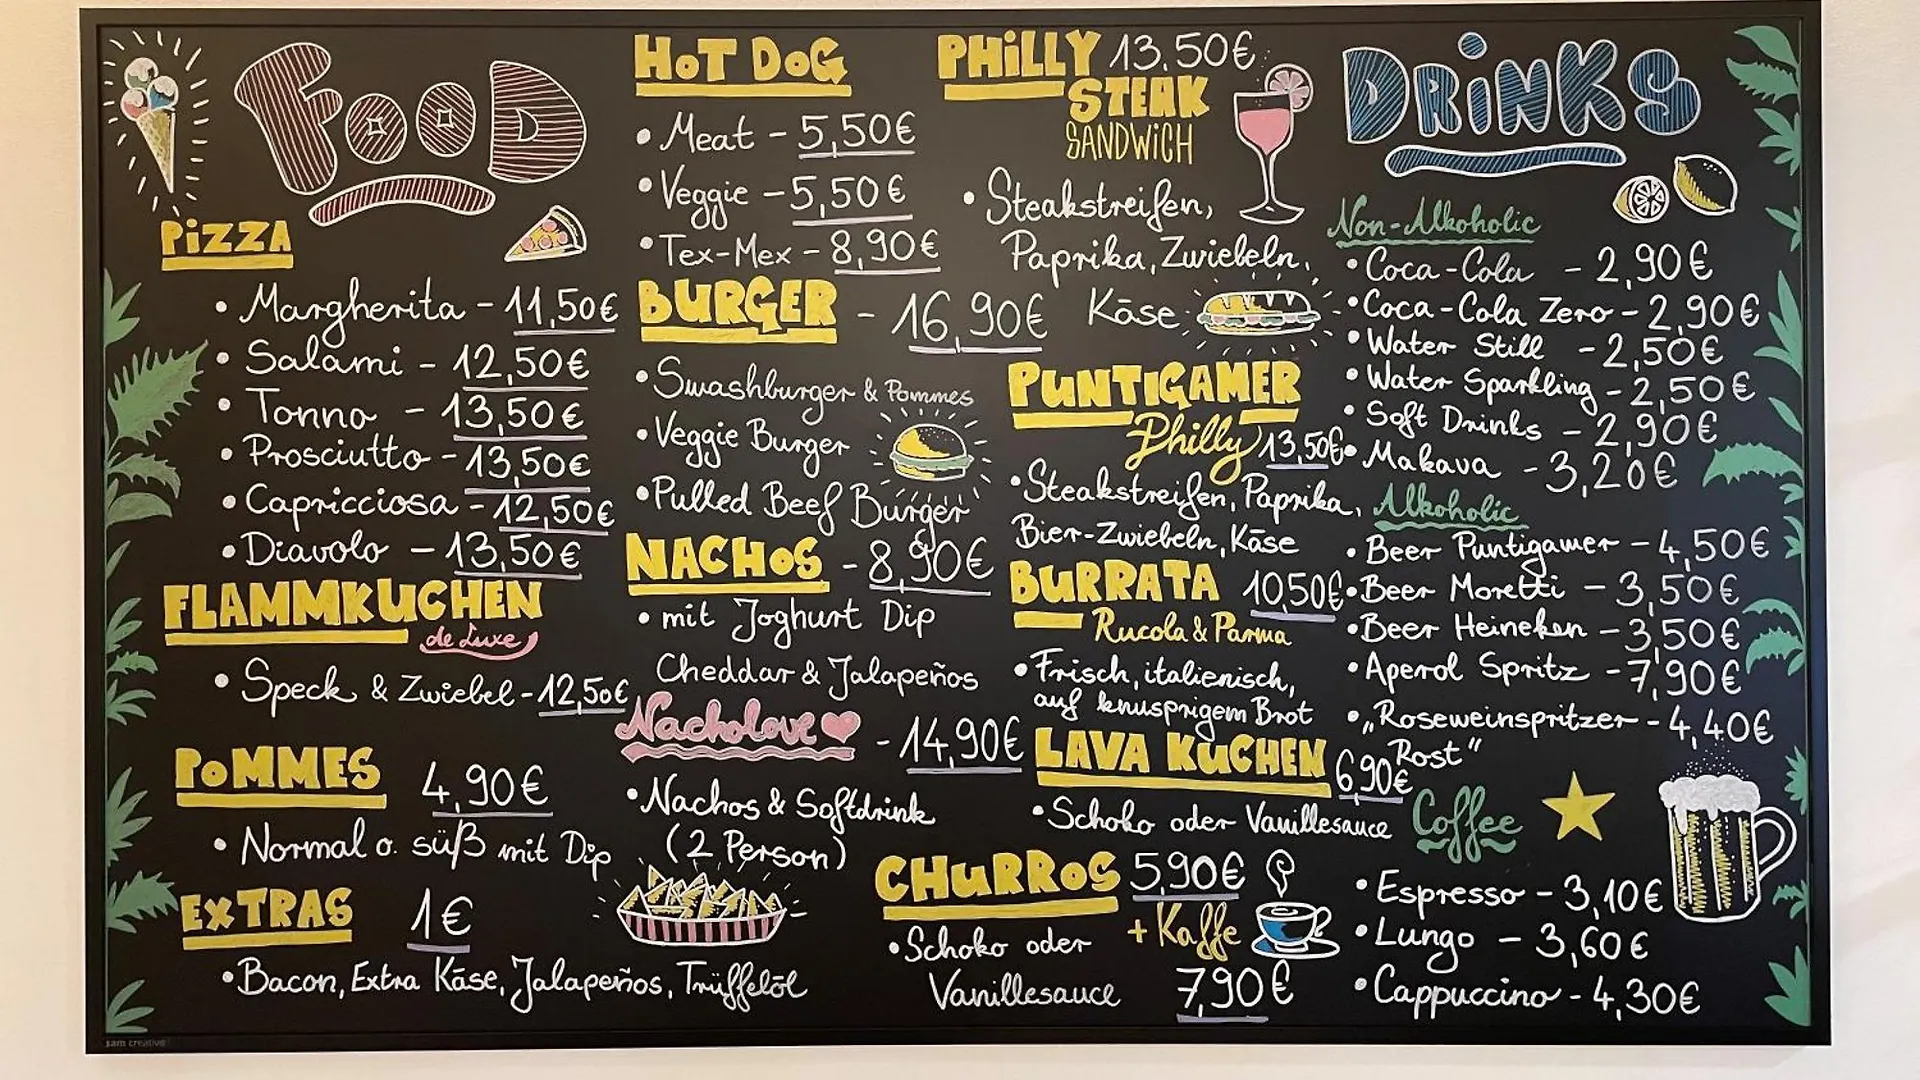 FOOD
PiZZA
• Margherita - 11,50€
• Salami - 12,50€
• Tonno - 13,50€
• Prosciutto - 13,50€
• Capricciosa - 12,50€
• Diavolo - 13,50€
FLAMMKUCHEN
de Luxe
• Speck & Zwiebel - 12,50€
PoMMES 4,90€
• Normal o. süß mit Dip
ExTRAS 1€
• Bacon, Extra Käse, Jalapeños, Trüffelöl
HoT DoG
• Meat - 5,50€
• Veggie - 5,50€
• Tex-Mex - 8,90€
BURGER - 16,90€
• Smashburger & Pommes
• Veggie Burger
• Pulled Beef Burger
NACHoS - 8,90€
• mit Joghurt Dip
Cheddar & Jalapeños
Nacholove - 14,90€
• Nachos & Softdrink
(2 Person)
PHiLLY 13,50€
STEAK
SANDWiCH
• Steakstreifen,
Paprika, Zwiebeln,
Käse
PUNTIGAMER
Philly 13,50€
• Steakstreifen, Paprika,
Bier-Zwiebeln, Käse
BURRATA 10,50€
Rucola & Parma
• Frisch, italienisch,
auf knusprigem Brot
LAVA KUCHEN 6,90€
• Schoko oder Vanillesauce
CHURRoS 5,90€
+ Kaffe
• Schoko oder
Vanillesauce 7,90€
DRiNKS
Non-Alkoholic
• Coca-Cola - 2,90€
• Coca-Cola Zero - 2,90€
• Water Still - 2,50€
• Water Sparkling - 2,50€
• Soft Drinks - 2,90€
• Makava - 3,20€
Alkoholic
• Beer Puntigamer - 4,50€
• Beer Moretti - 3,50€
• Beer Heineken - 3,50€
• Aperol Spritz - 7,90€
• „Roseweinspritzer - 4,40€
Rost“
Coffee
• Espresso - 3,10€
• Lungo - 3,60€
• Cappuccino - 4,30€
sam creative